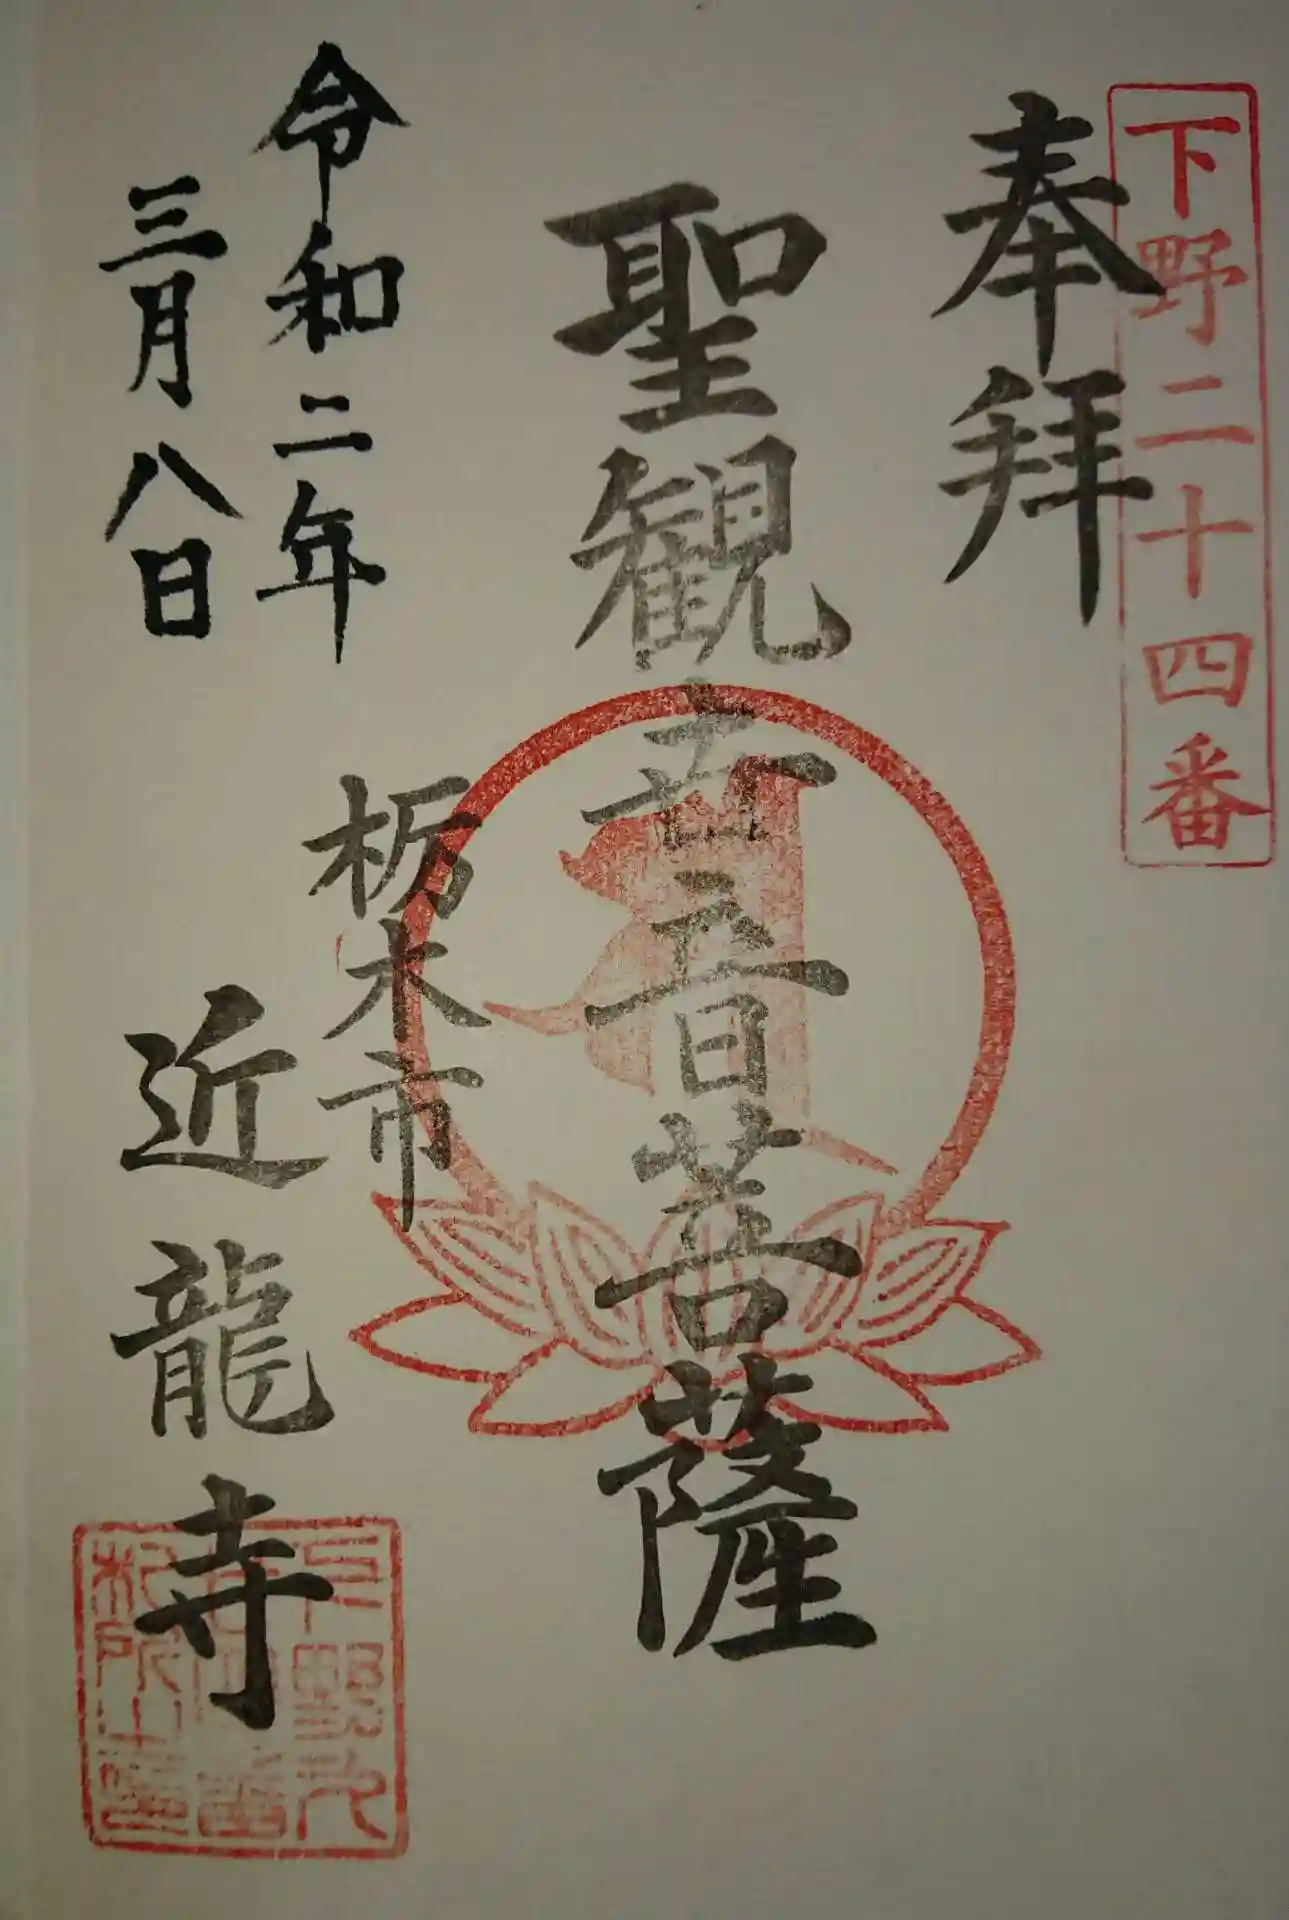 下野二十四番
奉拝
聖観世音菩薩
栃木市
近龍寺
令和二年
三月八日